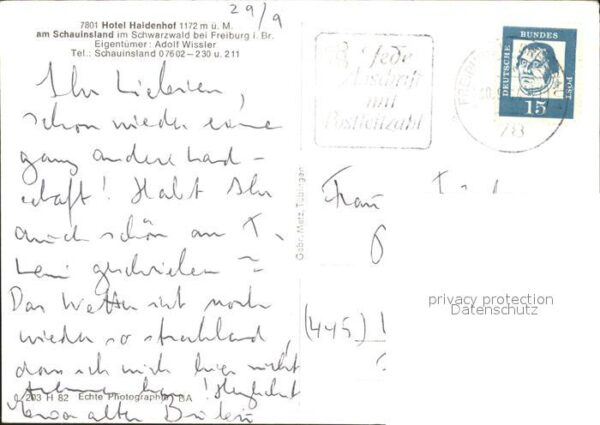 29/9
7801 Hotel Haldenhof 1172 m ü. M.
am Schauinsland im Schwarzwald bei Freiburg i. Br.
Eigentümer: Adolf Wissler
Tel.: Schauinsland 07602-230 u. 211
Ihr Lieben,
schon wieder eine
ganz andere Land-
schaft! Habt Ihr
auch schön an T.
geschrieben
Das Wetter ist noch
wieder so strahlend,
dass ich mich hier nicht
! Herzlichst
alter
0 203 H 82 Echte Photographie BA
Gebr. Metz, Tübingen
Jede
Anschrift
mit
Postleitzahl
783
DEUTSCHE BUNDES POST
15
Frau
(445)
privacy protection
Datenschutz